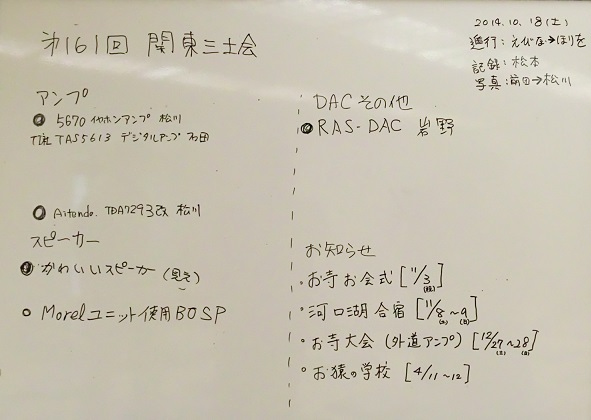 第161回 関東三土会
2014.10.18(土)
進行:えびな→ほりを
記録:松本
写真:前田→松川
アンプ
5670イヤホンアンプ 松川
TI社 TAS5613 デジタルアンプ
Aitendo. TDA7293改 松川
スピーカー
かわいいスピーカー
Morelユニット使用BOSP
DACその他
RAS-DAC 岩野
お知らせ
・お寺お会式[11/3(祝)]
・河口湖合宿[11/8(土)~9(日)]
・お寺大会(外道アンプ)[12/27(土)~28(日)]
・お猿の学校 [4/11~12]